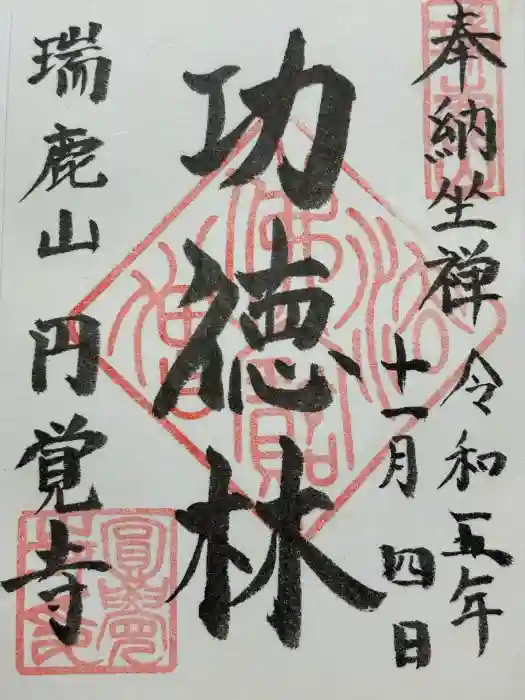 奉納坐禅
令和五年
十一月四日
功徳林
瑞鹿山円覚寺
佛法僧寳